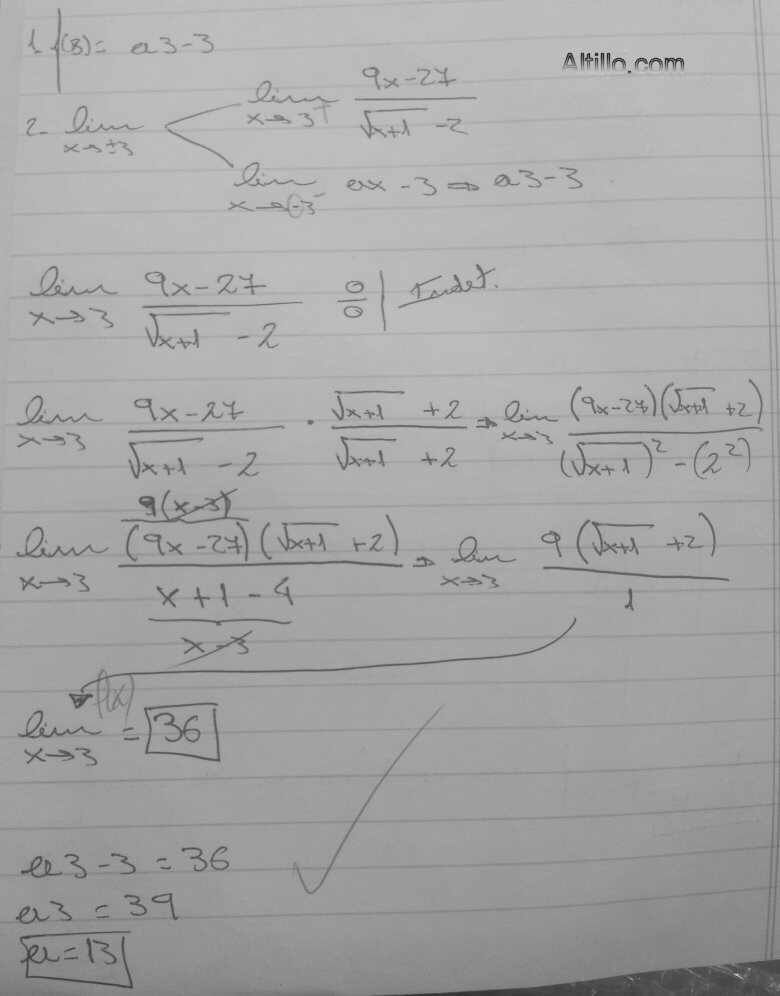 Altillo.com
1. f(3) = a3-3
2- lim x→±3 lim x→3⁺ (9x-27)/(√(x+1) -2)
lim x→-3⁻ ax-3 ⇒ a3-3
lim x→3 (9x-27)/(√(x+1) -2) 0/0 | Indet.
lim x→3 (9x-27)/(√(x+1) -2) · (√(x+1) +2)/(√(x+1) +2) ⇒ lim x→3 (9x-27)(√(x+1) +2)/((√(x+1))² - (2²))
9(x-3)
lim x→3 (9x-27)(√(x+1) +2)/(x+1-4) ⇒ lim x→3 9(√(x+1) +2)/1
x-3
lim x→3 f(x) = 36
a3-3 = 36
a3 = 39
a=13